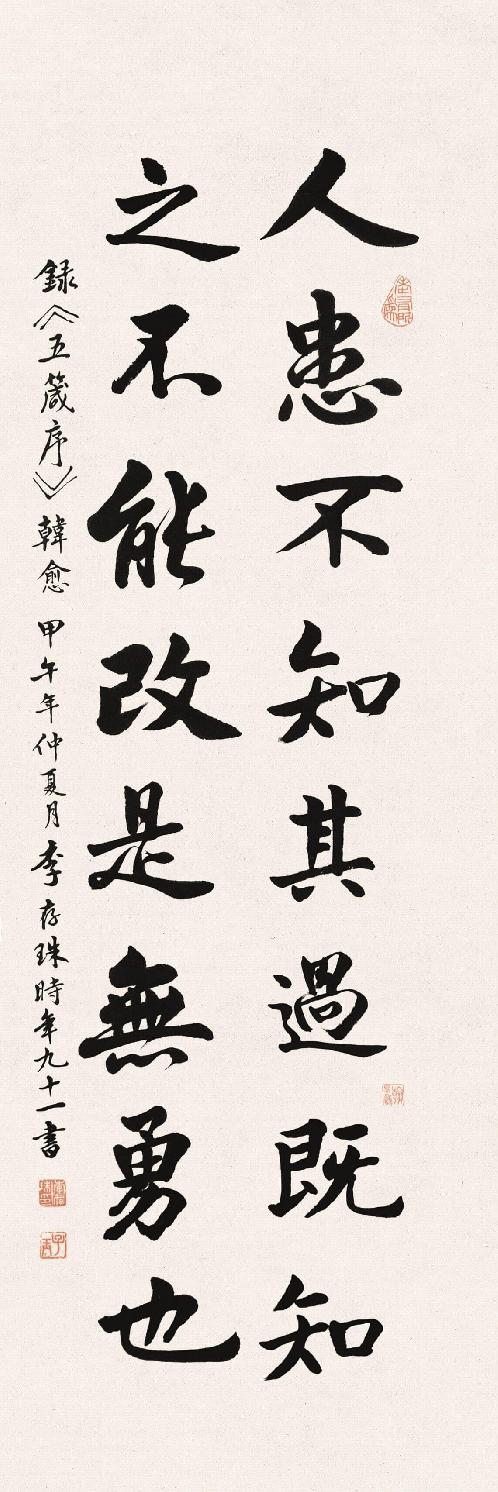 人患不知其過既知
之不能改是無勇也
録《五箴序》韓愈 甲午年仲夏月李存珠時年九十一書